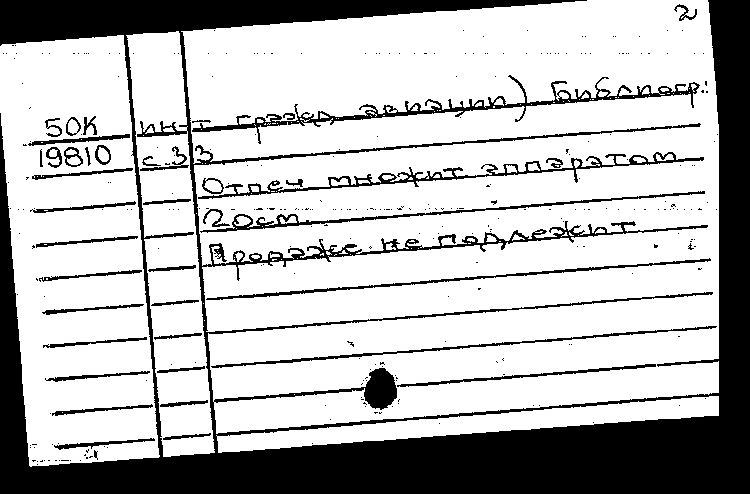 2
50К ин-т гражд. авиации) Библиогр.:
19810 с.33.
Отпеч множит аппаратом
20см.
Продаже не подлежит